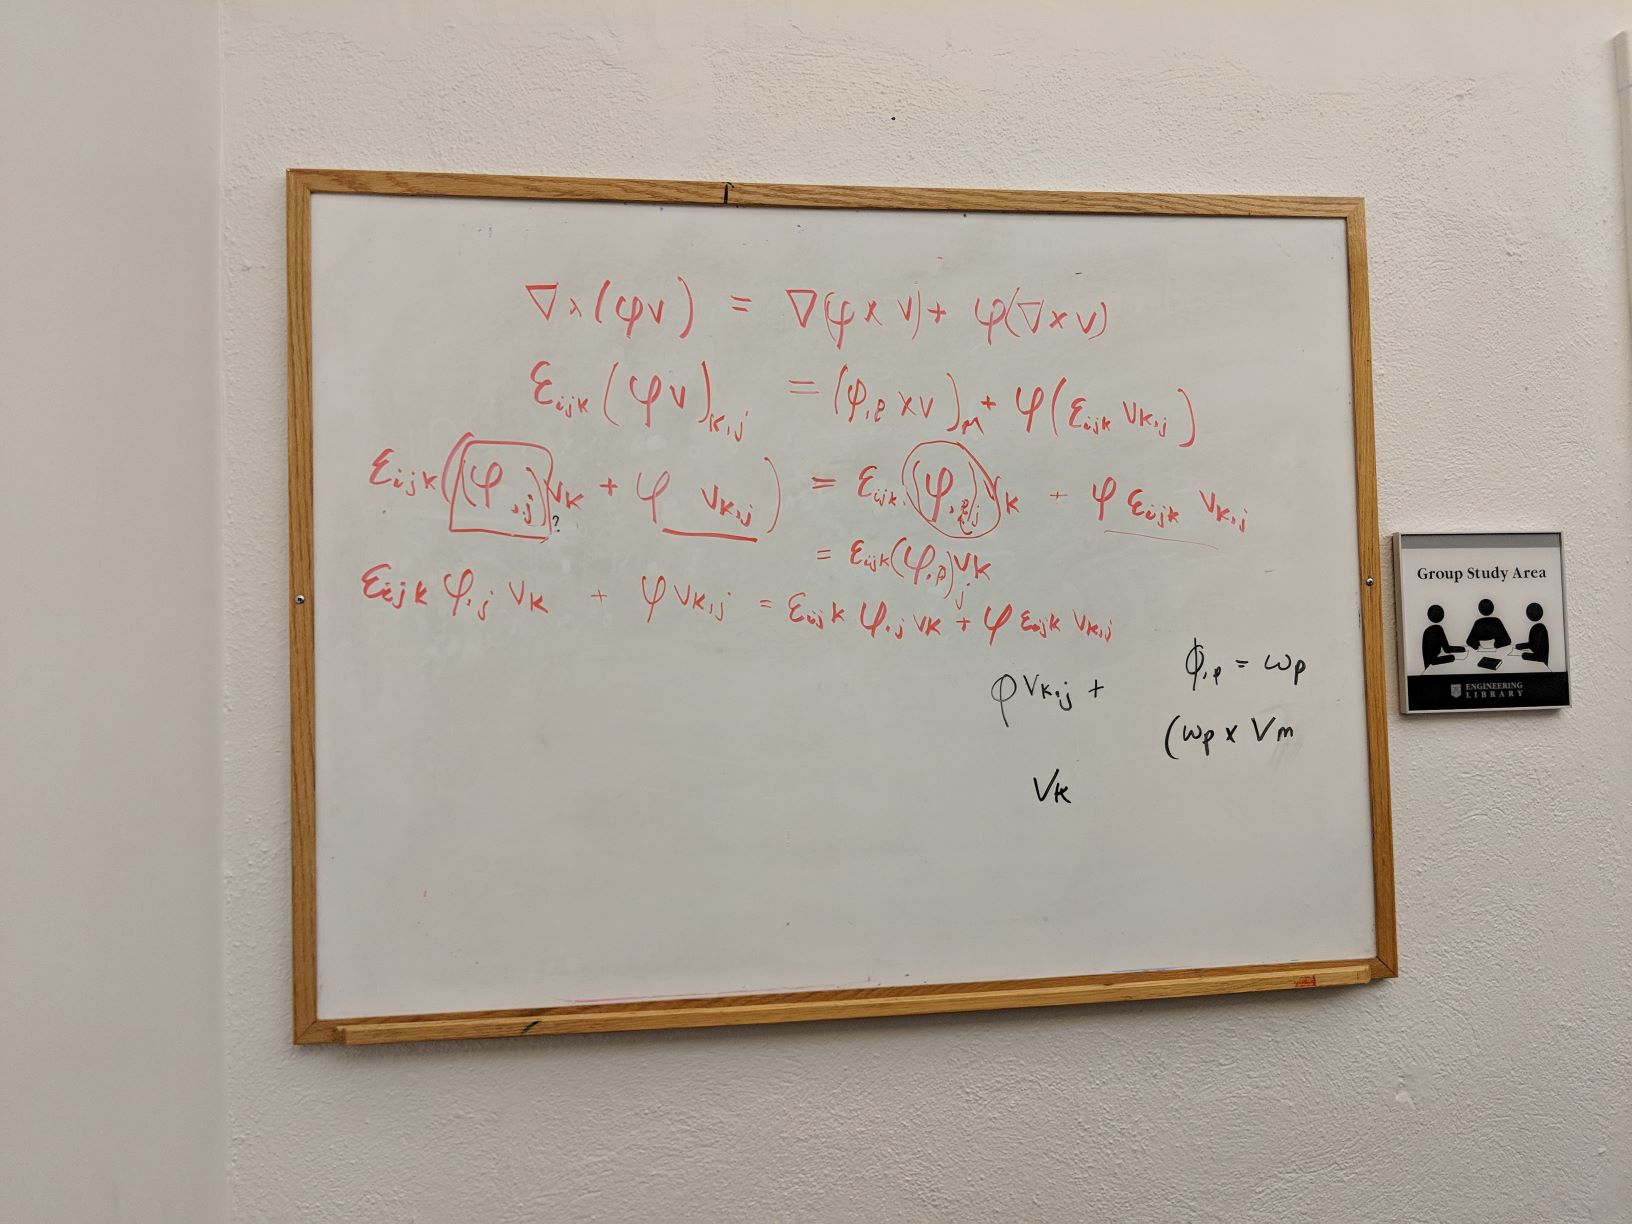 ∇×(φv) = ∇(φ × v) + φ(∇ × v)
εijk (φv)k,j = (φ,p × v)m + φ(εijk vk,j)
εijk((φ,j)vk + φ vk,j) = εijk (φ, j)vk + φ εijk vk,j
?
= εijk(φ,p)vk j
εijk φ,j vk + φ vk,j = εijk φ,j vk + φ εijk vk,j
φ vk,j +
ϕ,p = wp
(wp × Vm
Vk
Group Study Area
ENGINEERING
LIBRARY